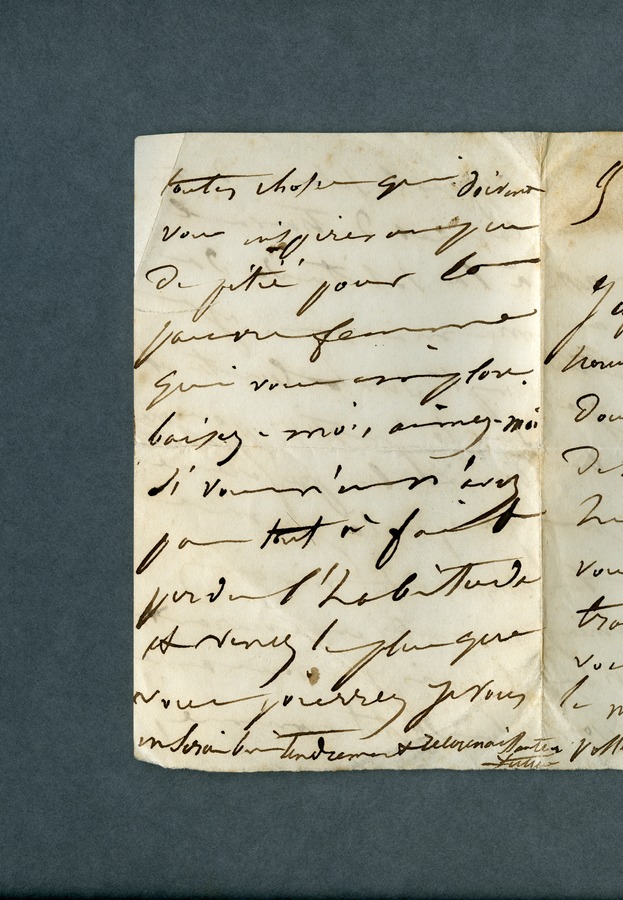 toutes choses qui doivent
vous inspirer un peu
de pitié pour la
pauvre femme
qui vous implore.
baisez-moi, aimez-moi
si vous n'en n'avez
pas tout à fait
perdu l'habitude
et venez le plus que
vous pourrez je vous
en serai bien tendrement reconnaissante
J
hou
dou
de
vou
tro
vou
le